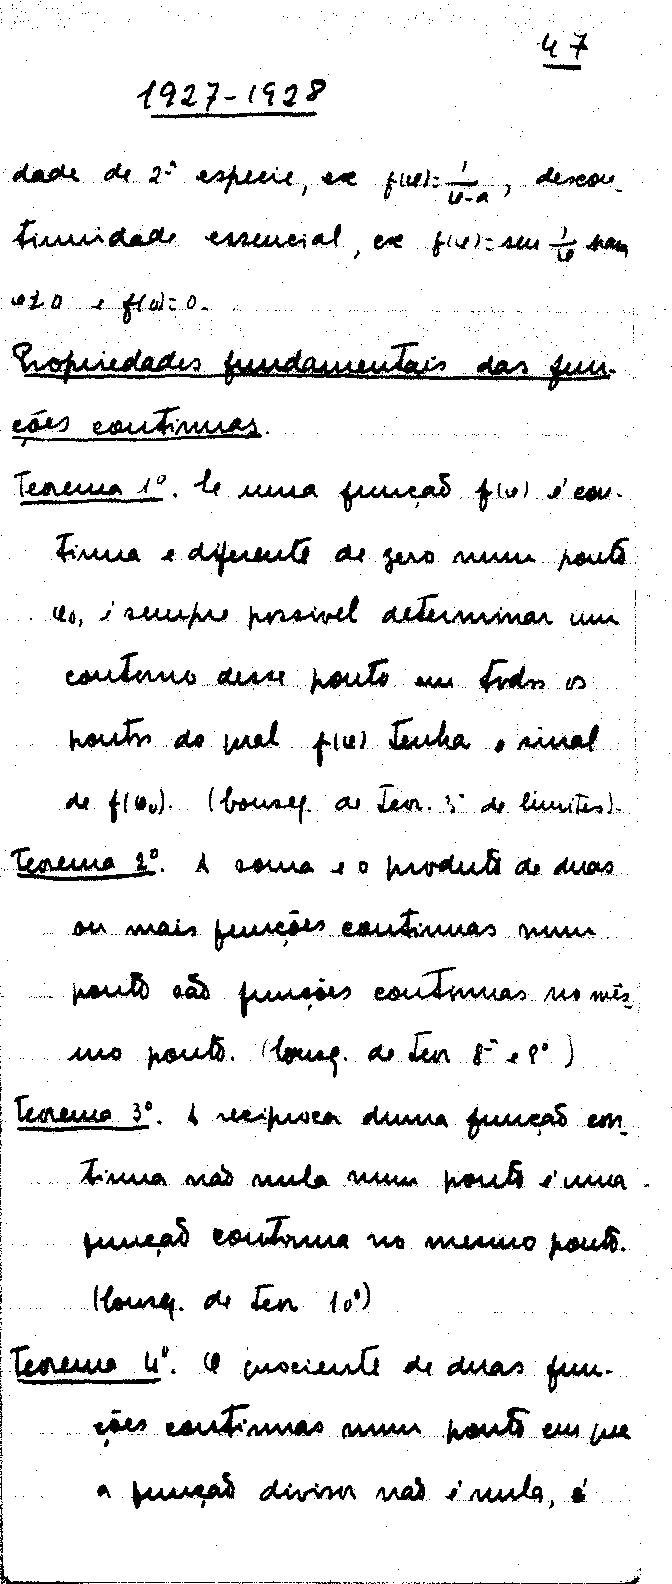 47
1927-1928
dade de 2ª espécie, ex f(x)=1/(x-a), descon-
tinuidade essencial, ex f(x)=sen 1/x para
x≠0 e f(0)=0.
Propriedades fundamentais das fun-
ções continuas.
Teorema 1º. Se uma função f(x) é con-
tinua e diferente de zero num ponto
x₀, é sempre possivel determinar um
contorno desse ponto em todos os
pontos do qual f(x) tenha o sinal
de f(x₀). (Conseq. do teor. 5º de limites).
Teorema 2º. A soma e o produto de duas
ou mais funções continuas num
ponto são funções continuas no mês-
mo ponto. (Conseq. do teor 8º e 9º)
Teorema 3º. A reciproca duma função con-
tinua não nula num ponto é uma
função continua no mesmo ponto.
(Conseq. do teor 10º)
Teorema 4º. O quociente de duas fun-
ções continuas num ponto em que
a função divisor não é nula, é